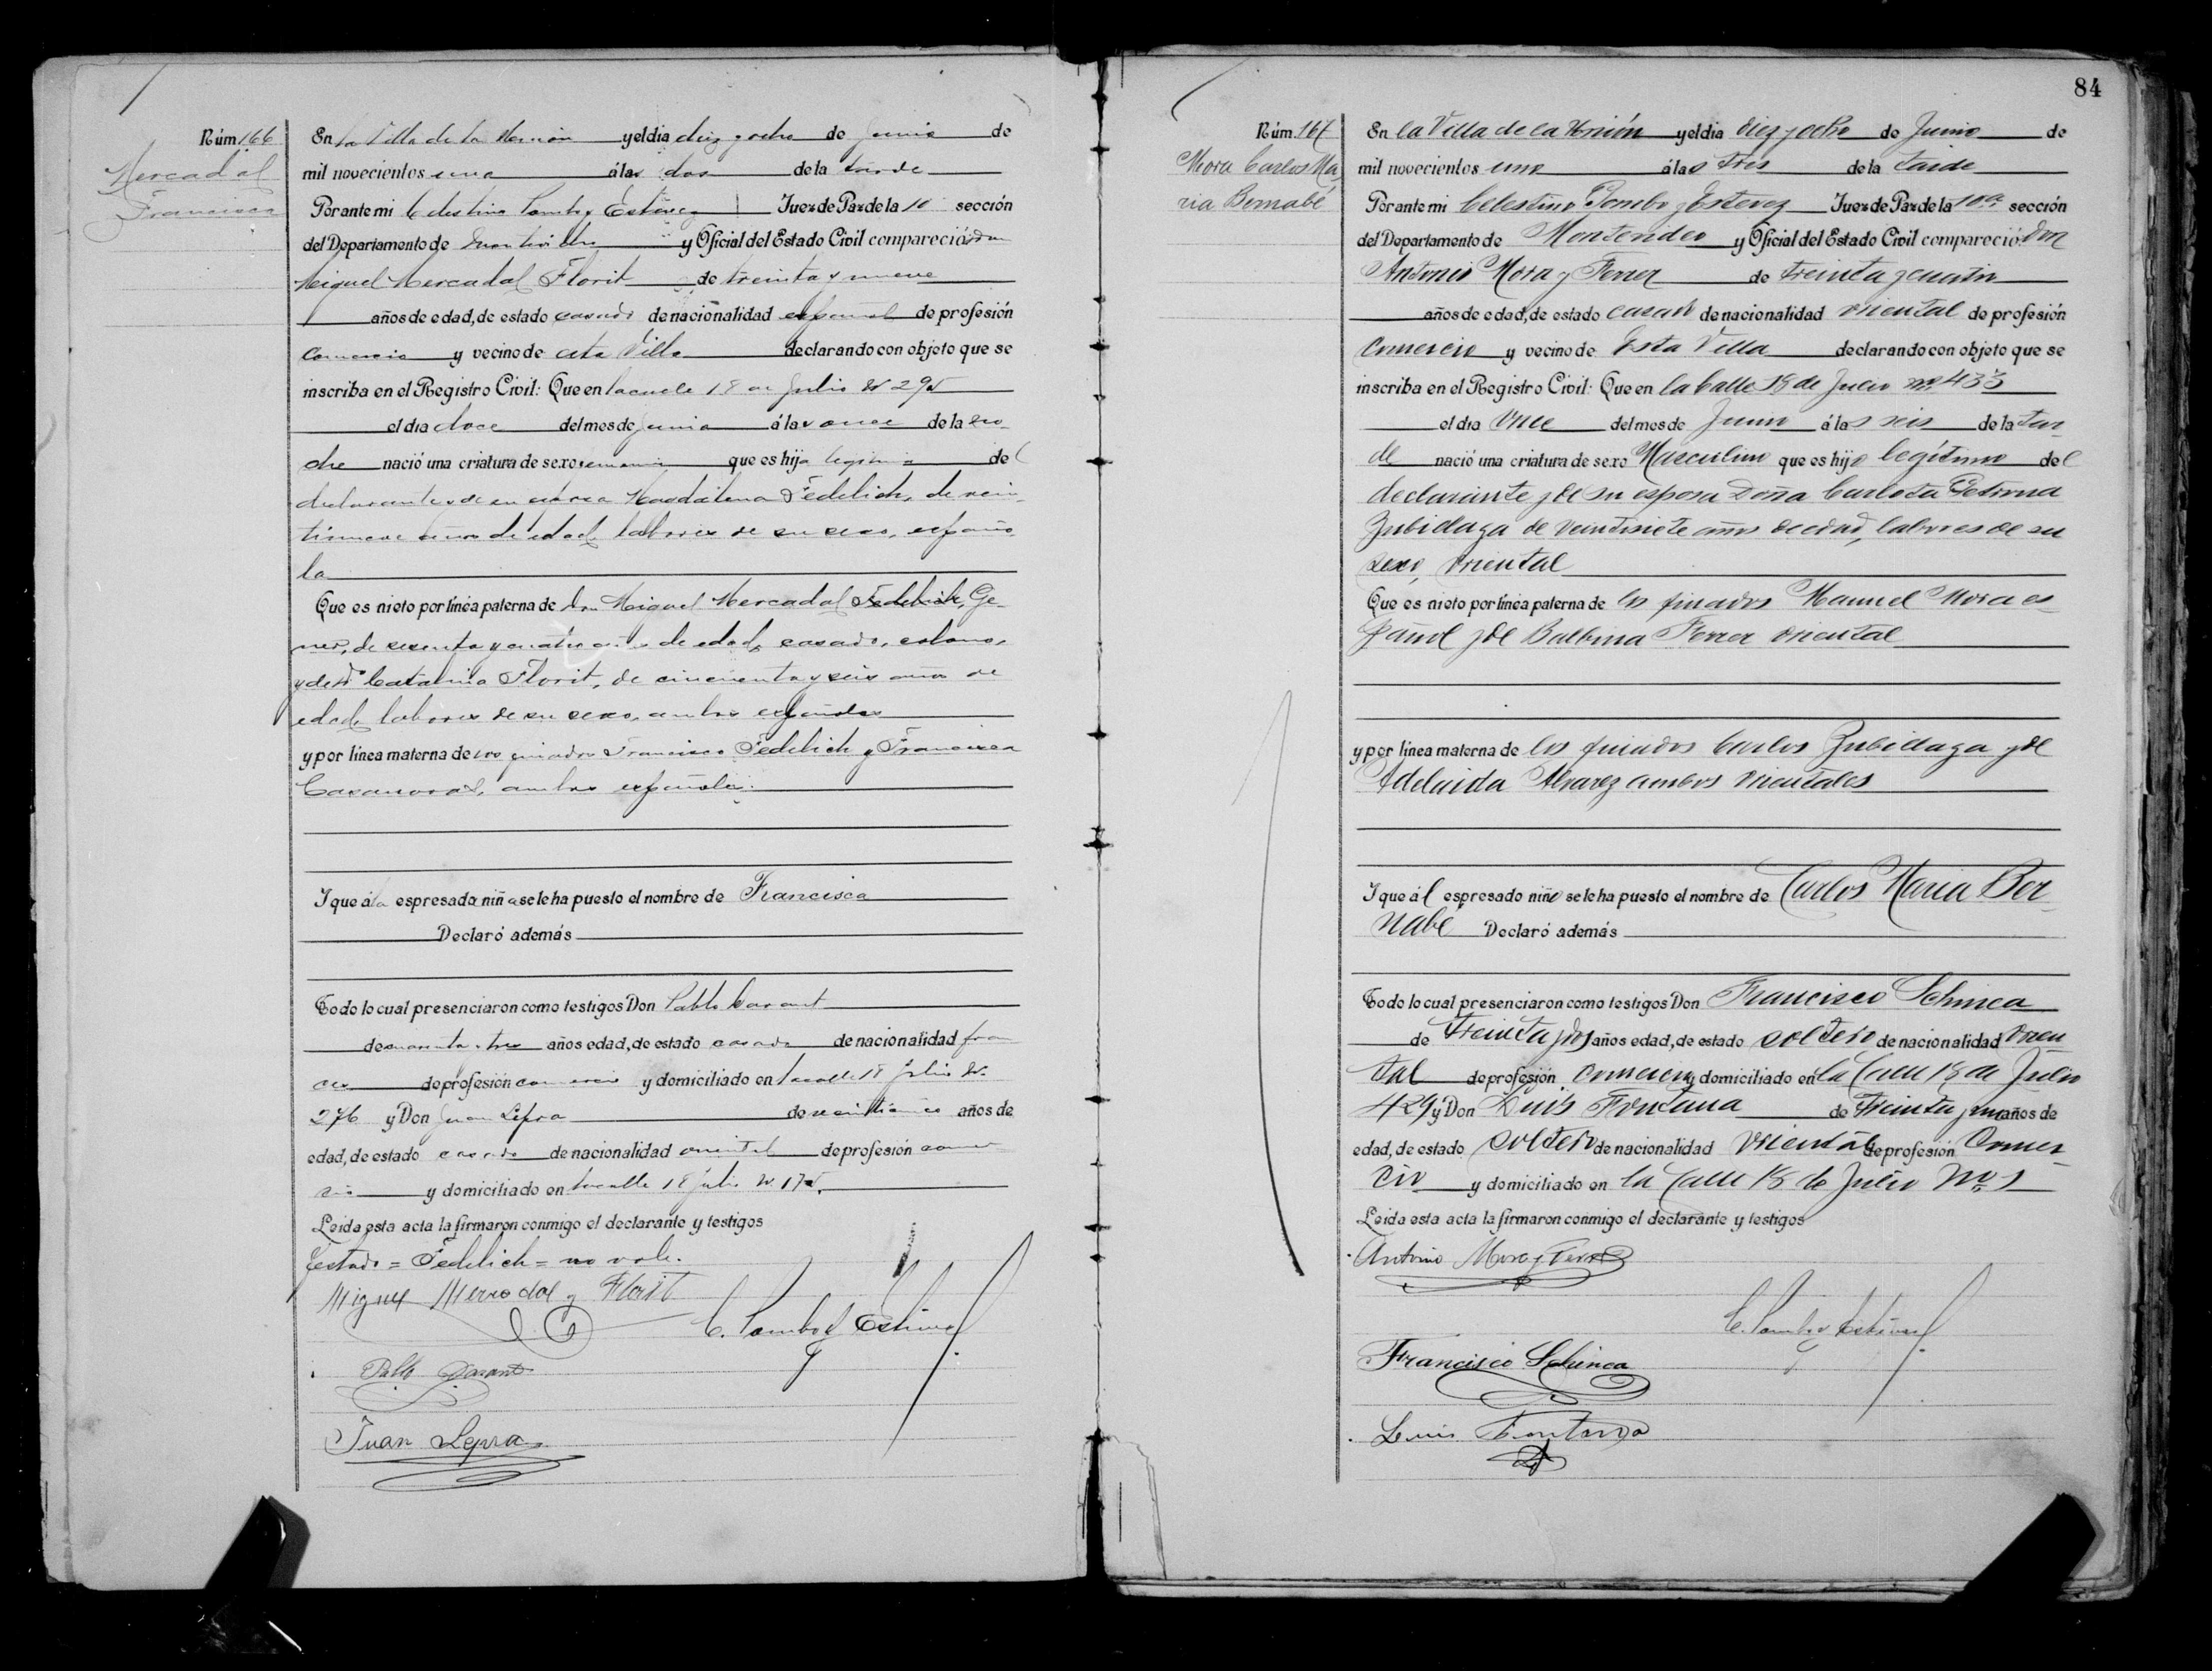 Núm. 166
Mercadal
Francisca
En la Villa de la Unión y el dia diez y ocho de Junio de
mil novecientos uno á las dos de la tarde
Por ante mi Celestino Pombo y Estévez Juez de Paz de la 10 sección
del Departamento de Montevideo y Oficial del Estado Civil compareció: don
Miguel Mercadal Florit de treinta y nueve
años de edad, de estado casado de nacionalidad español de profesión
comercio y vecino de esta Villa declarando con objeto que se
inscriba en el Registro Civil: Que en la calle 18 de Julio Nº
el dia doce del mes de Junio á las once de la no
che nació una criatura de sexo femenino que es hija legitima del
declarante y de su esposa Magdalena Fedelich, de vein-
tinueve años de edad, labores de su sexo, españo
la
Que es nieto por línea paterna de don Miguel Mercadal Fedelich, Ge-
ner, de sesenta y cuatro años de edad, casado, colono,
y de Dª Catalina Florit, de cincuenta y seis años de
edad, labores de su sexo, ambos españoles
y por línea materna de los finados Francisco Fedelich y Francisca
Casanovas, ambos españoles.
I que á la espresada niña se le ha puesto el nombre de Francisca
Declaró además
Todo lo cual presenciaron como testigos Don Pablo
de cuarenta y tres años edad, de estado casado de nacionalidad fran
ces de profesión comercio y domiciliado en la calle 18 Julio Nº
276 y Don Juan Lepra de veinticinco años de
edad, de estado casado de nacionalidad oriental de profesión comer
cio y domiciliado en la calle 18 Julio Nº
Leida esta acta la firmaron conmigo el declarante y testigos
Testado = Fedelich = no vale.
Miguel Mercadal y Florit
C. Pombo y Estévez
Pablo
Juan Lepra
84
Núm. 167
Mora Carlos Ma
ria Bernabé
En la Villa de la Unión y el dia diez y ocho de Junio de
mil novecientos uno á las tres de la tarde
Por ante mi Celestino Pombo y Estevez Juez de Paz de la 10ª sección
del Departamento de Montevideo y Oficial del Estado Civil compareció: Don
Antonio Mora y Ferrer de treinta y cuatro
años de edad, de estado casado de nacionalidad oriental de profesión
Comercio y vecino de Esta Villa declarando con objeto que se
inscriba en el Registro Civil: Que en la Calle 18 de Julio nº 433
el dia once del mes de Junio á las seis de la tar
de nació una criatura de sexo Masculino que es hijo legítimo del
declarante y de su esposa Doña Carlota Petrona
Zubillaga de veintisiete años de edad, labores de su
sexo, oriental
Que es nieto por línea paterna de los finados Manuel Mora es
pañol y de Balbina Ferrer oriental
y por línea materna de los finados Carlos Zubillaga y de
Adelaida Alvarez ambos orientales
I que ál espresado niño se le ha puesto el nombre de Carlos Maria Ber
nabé Declaró además
Todo lo cual presenciaron como testigos Don Francisco Schinca
de treinta y dos años edad, de estado soltero de nacionalidad orien
tal de profesión comercio y domiciliado en la Calle 18 de Julio
429 y Don Luis Fontana de treinta y un años de
edad, de estado soltero de nacionalidad oriental de profesión Comer
cio y domiciliado en la Calle 18 de Julio Nº
Leida esta acta la firmaron conmigo el declarante y testigos
Antonio Mora y Ferrer
C. Pombo y Estévez
Francisco Schinca
Luis Fontana